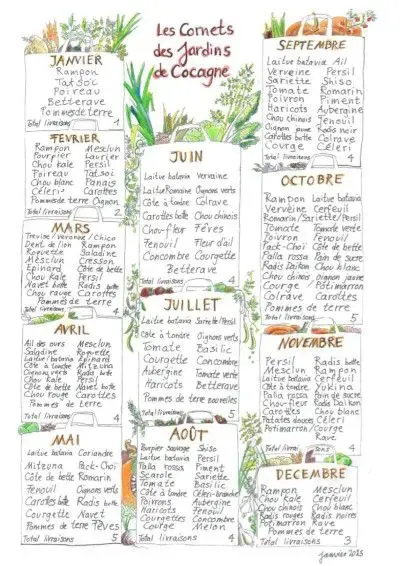 Les Cornets
des Jardins
de Cocagne
JANVIER
Rampon
Tatsoï
Poireau
Betterave
Pommes de terre
Total livraisons 1
FEVRIER
Rampon Mesclun
Pourpier Laurier
Chou kale Persil
Poireau Tatsoï
Chou blanc Panais
Céleri Carottes
Pommes de terre Oignon
Total livraisons 2
MARS
Trévise/Veronne/Chico
Dent de lion Rampon
Roquette Saladine
Mesclun Cresson
Epinard Côte de bette
Chou Kale Persil
Navet botte Radis botte
Chou rouge Carottes
Pommes de terre
Total livraisons 4
AVRIL
Ail des ours Mesclun
Saladine Roquette
Laitue batavia Epinard
Côte à tondre Mitzuna
Oignons verts Radis botte
Chou Kale Persil
Côte de bette Navet botte
Chou rouge Carottes
Pommes de terre
Total livraisons 4
MAI
Laitue batavia Coriandre
Mitzuna Pack-Choï
Côte de bette Romarin
Fenouil Oignons verts
Carottes botte Radis botte
Courgette Navet
Pommes de terre Fèves
Total livraisons 5
JUIN
Laitue batavia Verveine
Laitue Romaine Oignons verts
Côte à tondre Colrave
Carottes botte Chou chinois
Chou-fleur Fèves
Fenouil Fleur d'ail
Concombre Courgette
Betterave
Total livraisons 4
JUILLET
Laitue batavia Sarriette/Persil
Côte à tondre Oignons verts
Tomate Basilic
Courgette Concombre
Aubergine Tomate verte
Haricots Betterave
Pommes de terre nouvelles
Total livraisons 5
AOÛT
Pourpier sauvage Shiso
Laitue batavia Persil
Palla rossa Piment
Scarole Sariette
Tomate Basilic
Côte à tondre Céleri-branche
Poivrons Aubergine
Haricots Fenouil
Courgettes Concombre
Courge Melon
Oignon
Total livraisons 4
SEPTEMBRE
Laitue batavia Ail
Verveine Persil
Sariette Shiso
Tomate Romarin
Poivron Piment
Haricots Aubergine
Chou chinois Fenouil
Oignon jaune Radis noir
Carottes botte Colrave
Courge Céleri
Total livraisons 4
OCTOBRE
Rampon Laitue batavia
Verveine Cerfeuil
Romarin/Sariette/Persil
Tomate Tomate verte
Poivron Fenouil
Pack-Choï Côte de bette
Palla rossa Pain de sucre
Radis Daikon Chou blanc
Chou chinois Oignon jaune
Courge Potimarron
Colrave Carottes
Pommes de terre
Total livraisons 5
NOVEMBRE
Persil Radis botte
Mesclun Rampon
Laitue batavia Cerfeuil
Côte de bette Yukina
Palla rossa Pain de sucre
Chou-fleur Radis Daikon
Carottes Chou blanc
Patates douces Céleri
Potimarron/Courge
Rave
Total livraisons 4
DECEMBRE
Rampon Mesclun
Chou Kale Cerfeuil
Chou chinois Chou blanc
Radis rouges Radis noires
Potimarron Rave
Pommes de terre
Total livraisons 3
janvier 2025